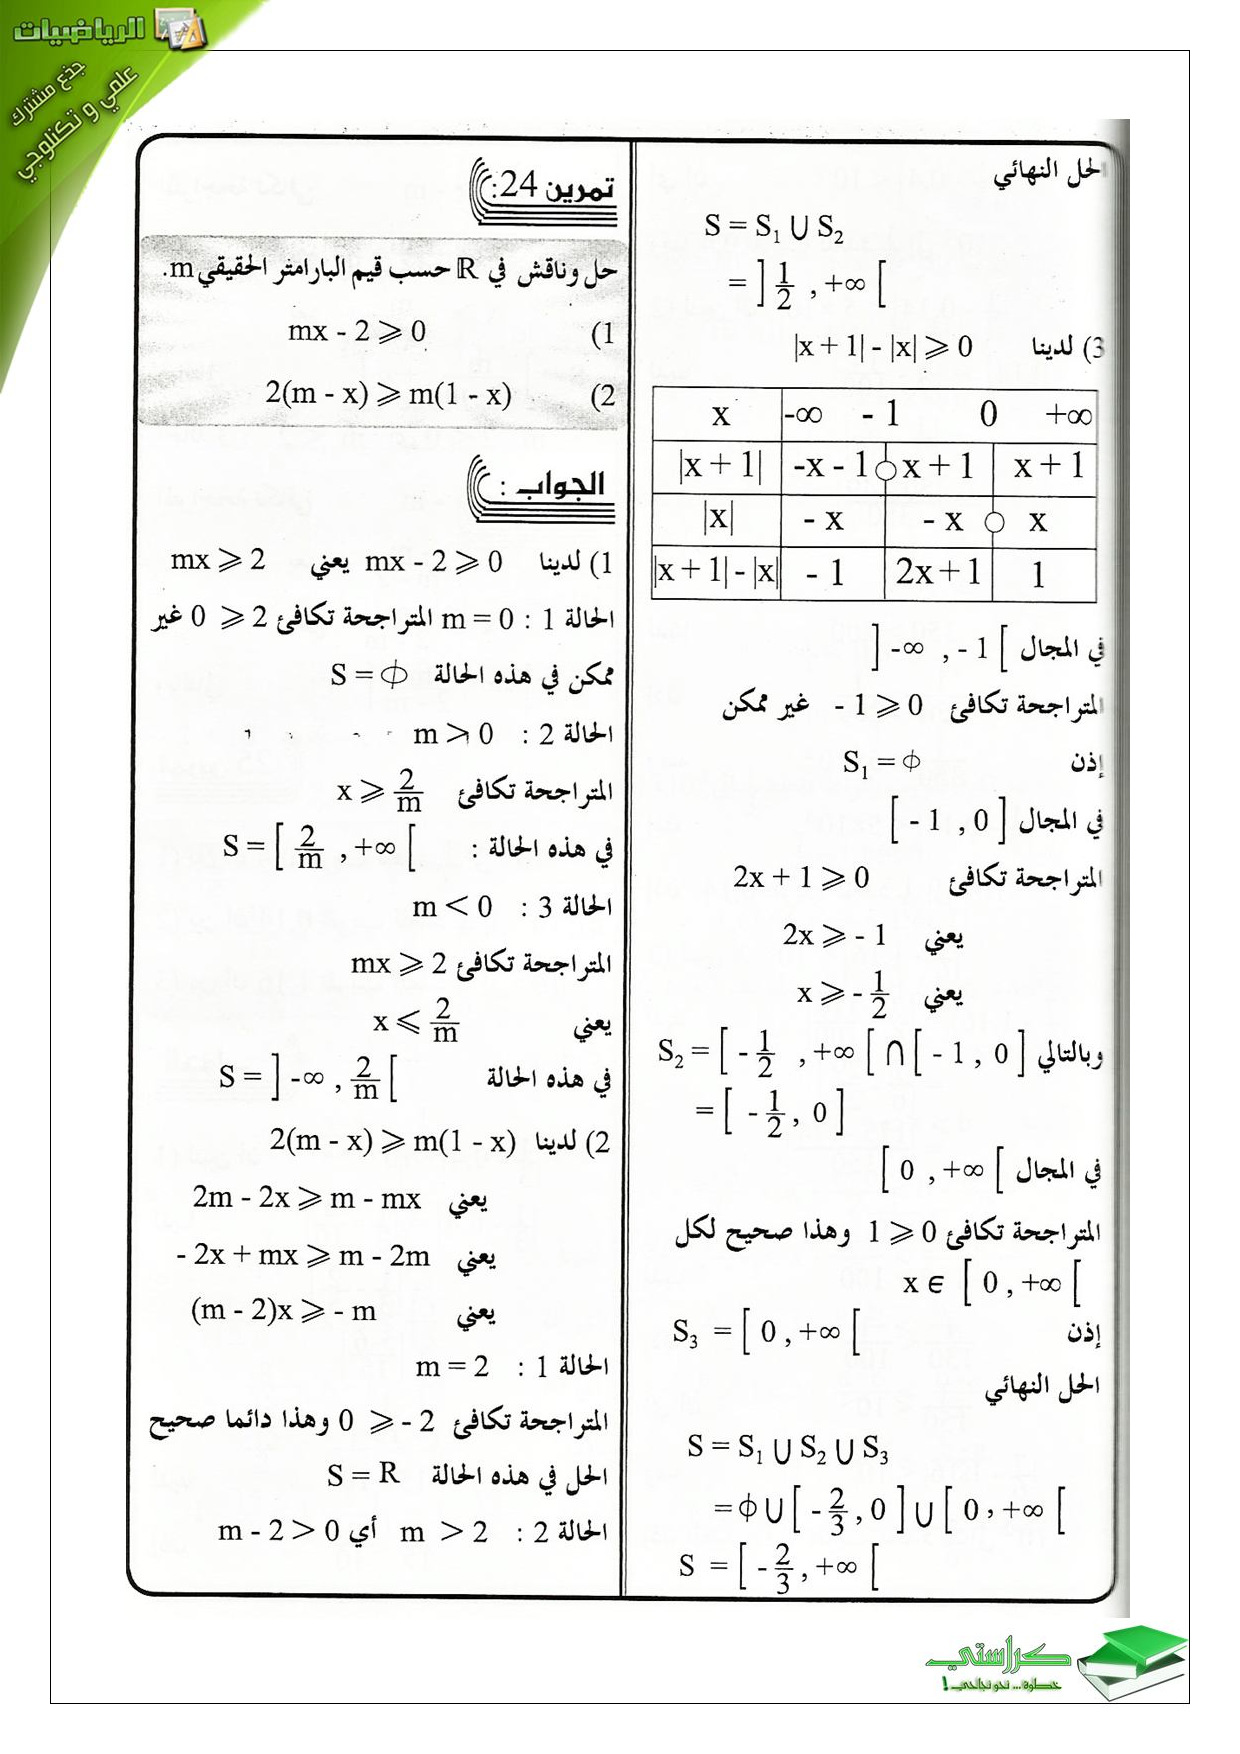 الرياضيات
جذع مشترك
علمي و تكنلوجي
الحل النهائي
S = S₁ ∪ S₂
= ] 1/2 , +∞ [
3) لدينا |x + 1| - |x| ⩾ 0
x -∞ - 1 0 +∞
|x + 1| -x - 1 x + 1 x + 1
|x| - x - x x
|x + 1| - |x| - 1 2x + 1 1
في المجال ] -∞ , - 1 [
المتراجحة تكافئ - 1 ⩾ 0 غير ممكن
إذن S₁ = ϕ
في المجال [ - 1 , 0 ]
المتراجحة تكافئ 2x + 1 ⩾ 0
يعني 2x ⩾ - 1
يعني x ⩾ - 1/2
وبالتالي S₂ = [ - 1/2 , +∞ [ ∩ [ - 1 , 0 ]
= [ - 1/2 , 0 ]
في المجال [ 0 , +∞ [
المتراجحة تكافئ 1 ⩾ 0 وهذا صحيح لكل
x ∈ [ 0 , +∞ [
إذن S₃ = [ 0 , +∞ [
الحل النهائي
S = S₁ ∪ S₂ ∪ S₃
= ϕ ∪ [ - 2/3 , 0 ] ∪ [ 0 , +∞ [
S = [ - 2/3 , +∞ [
تمرين 24:
حل وناقش في ℝ حسب قيم البارامتر الحقيقي m.
1) mx - 2 ⩾ 0
2) 2(m - x) ⩾ m(1 - x)
الجواب :
1) لدينا mx - 2 ⩾ 0 يعني mx ⩾ 2
الحالة 1 : m = 0 المتراجحة تكافئ 0 ⩾ 2 غير
ممكن في هذه الحالة S = ϕ
الحالة 2 : m > 0
المتراجحة تكافئ x ⩾ 2/m
في هذه الحالة : S = [ 2/m , +∞ [
الحالة 3 : m < 0
المتراجحة تكافئ mx ⩾ 2
يعني x ⩽ 2/m
في هذه الحالة S = ] -∞ , 2/m [
2) لدينا 2(m - x) ⩾ m(1 - x)
يعني 2m - 2x ⩾ m - mx
يعني - 2x + mx ⩾ m - 2m
يعني (m - 2)x ⩾ - m
الحالة 1 : m = 2
المتراجحة تكافئ 0 ⩾ - 2 وهذا دائما صحيح
الحل في هذه الحالة S = R
الحالة 2 : m > 2 أي m - 2 > 0
كراستي
خطوة... نحو نجاحي !